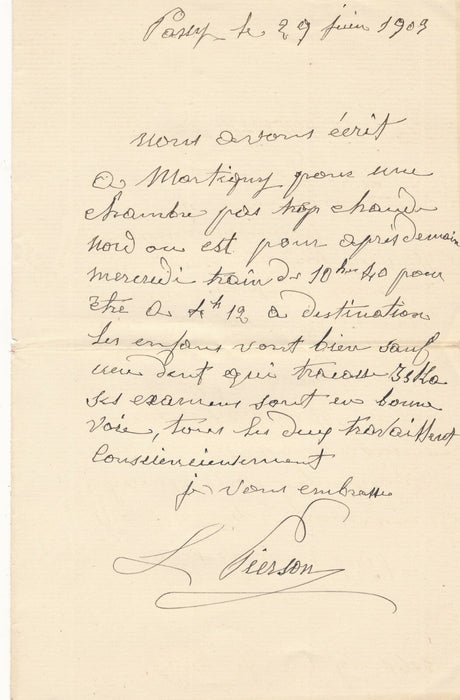 Passy le 29 juin 1903
nous avons écrit
à Martigny pour une
chambre pas trop chaude
nord ou est pour après demain
mercredi train de 10 hrs 40 pour
être à 4 h 12 à destination
les enfans vont bien sauf
une dent qui tracasse
ses examens sont en bonne
voie, tous les deux travaillent
consciencieusement
je vous embrasse
L Pierson